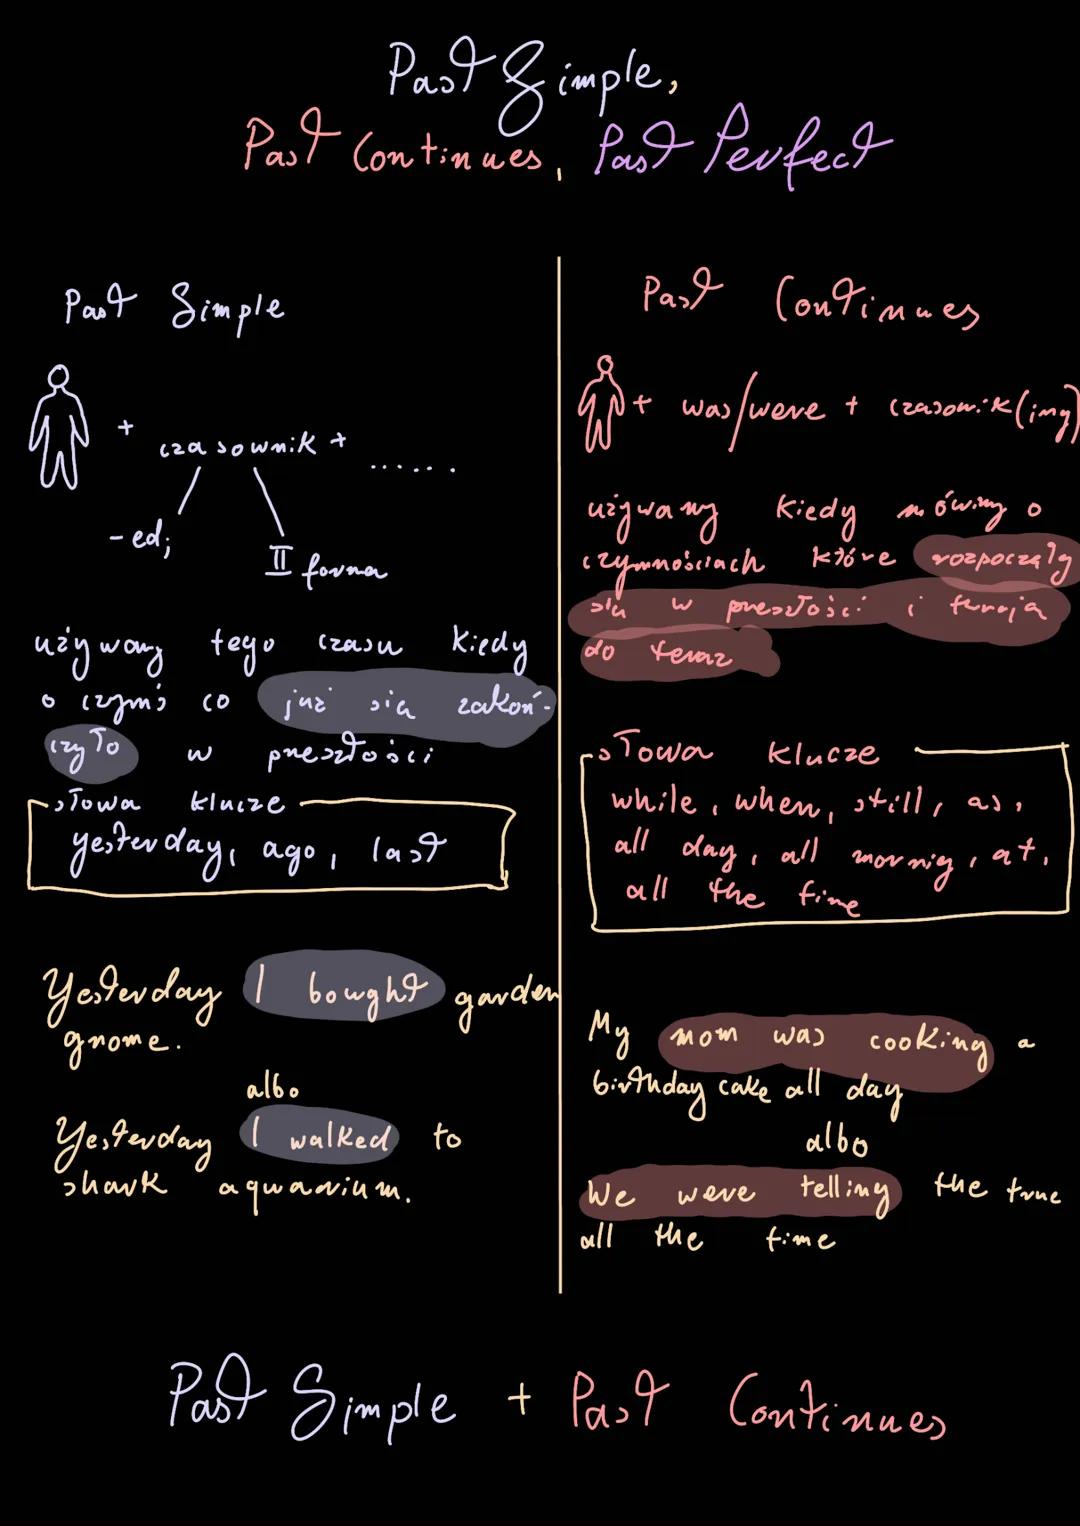 Past Simple,
Past Continues, Past Perfect
Past Simple
+ czasownik + ......
-ed;
II forma
używamy tego czasu kiedy
o czymś co już się zakoń-
czyło w przeszłości
słowa klucze
yesterday, ago, last
Yesterday I bought garden
gnome.
albo
Yesterday I walked to
shark aquarium.
Past Continues
+ was/were + czasownik(ing)
używamy kiedy mówimy o
czymnościach które rozpoczęły
się w przeszłości i trwają
do teraz
słowa klucze
while, when, still, as,
all day, all mornig, at,
all the time
My mom was cooking a
birthday cake all day
albo
We were telling the true
all the time
Past Simple + Past Continues